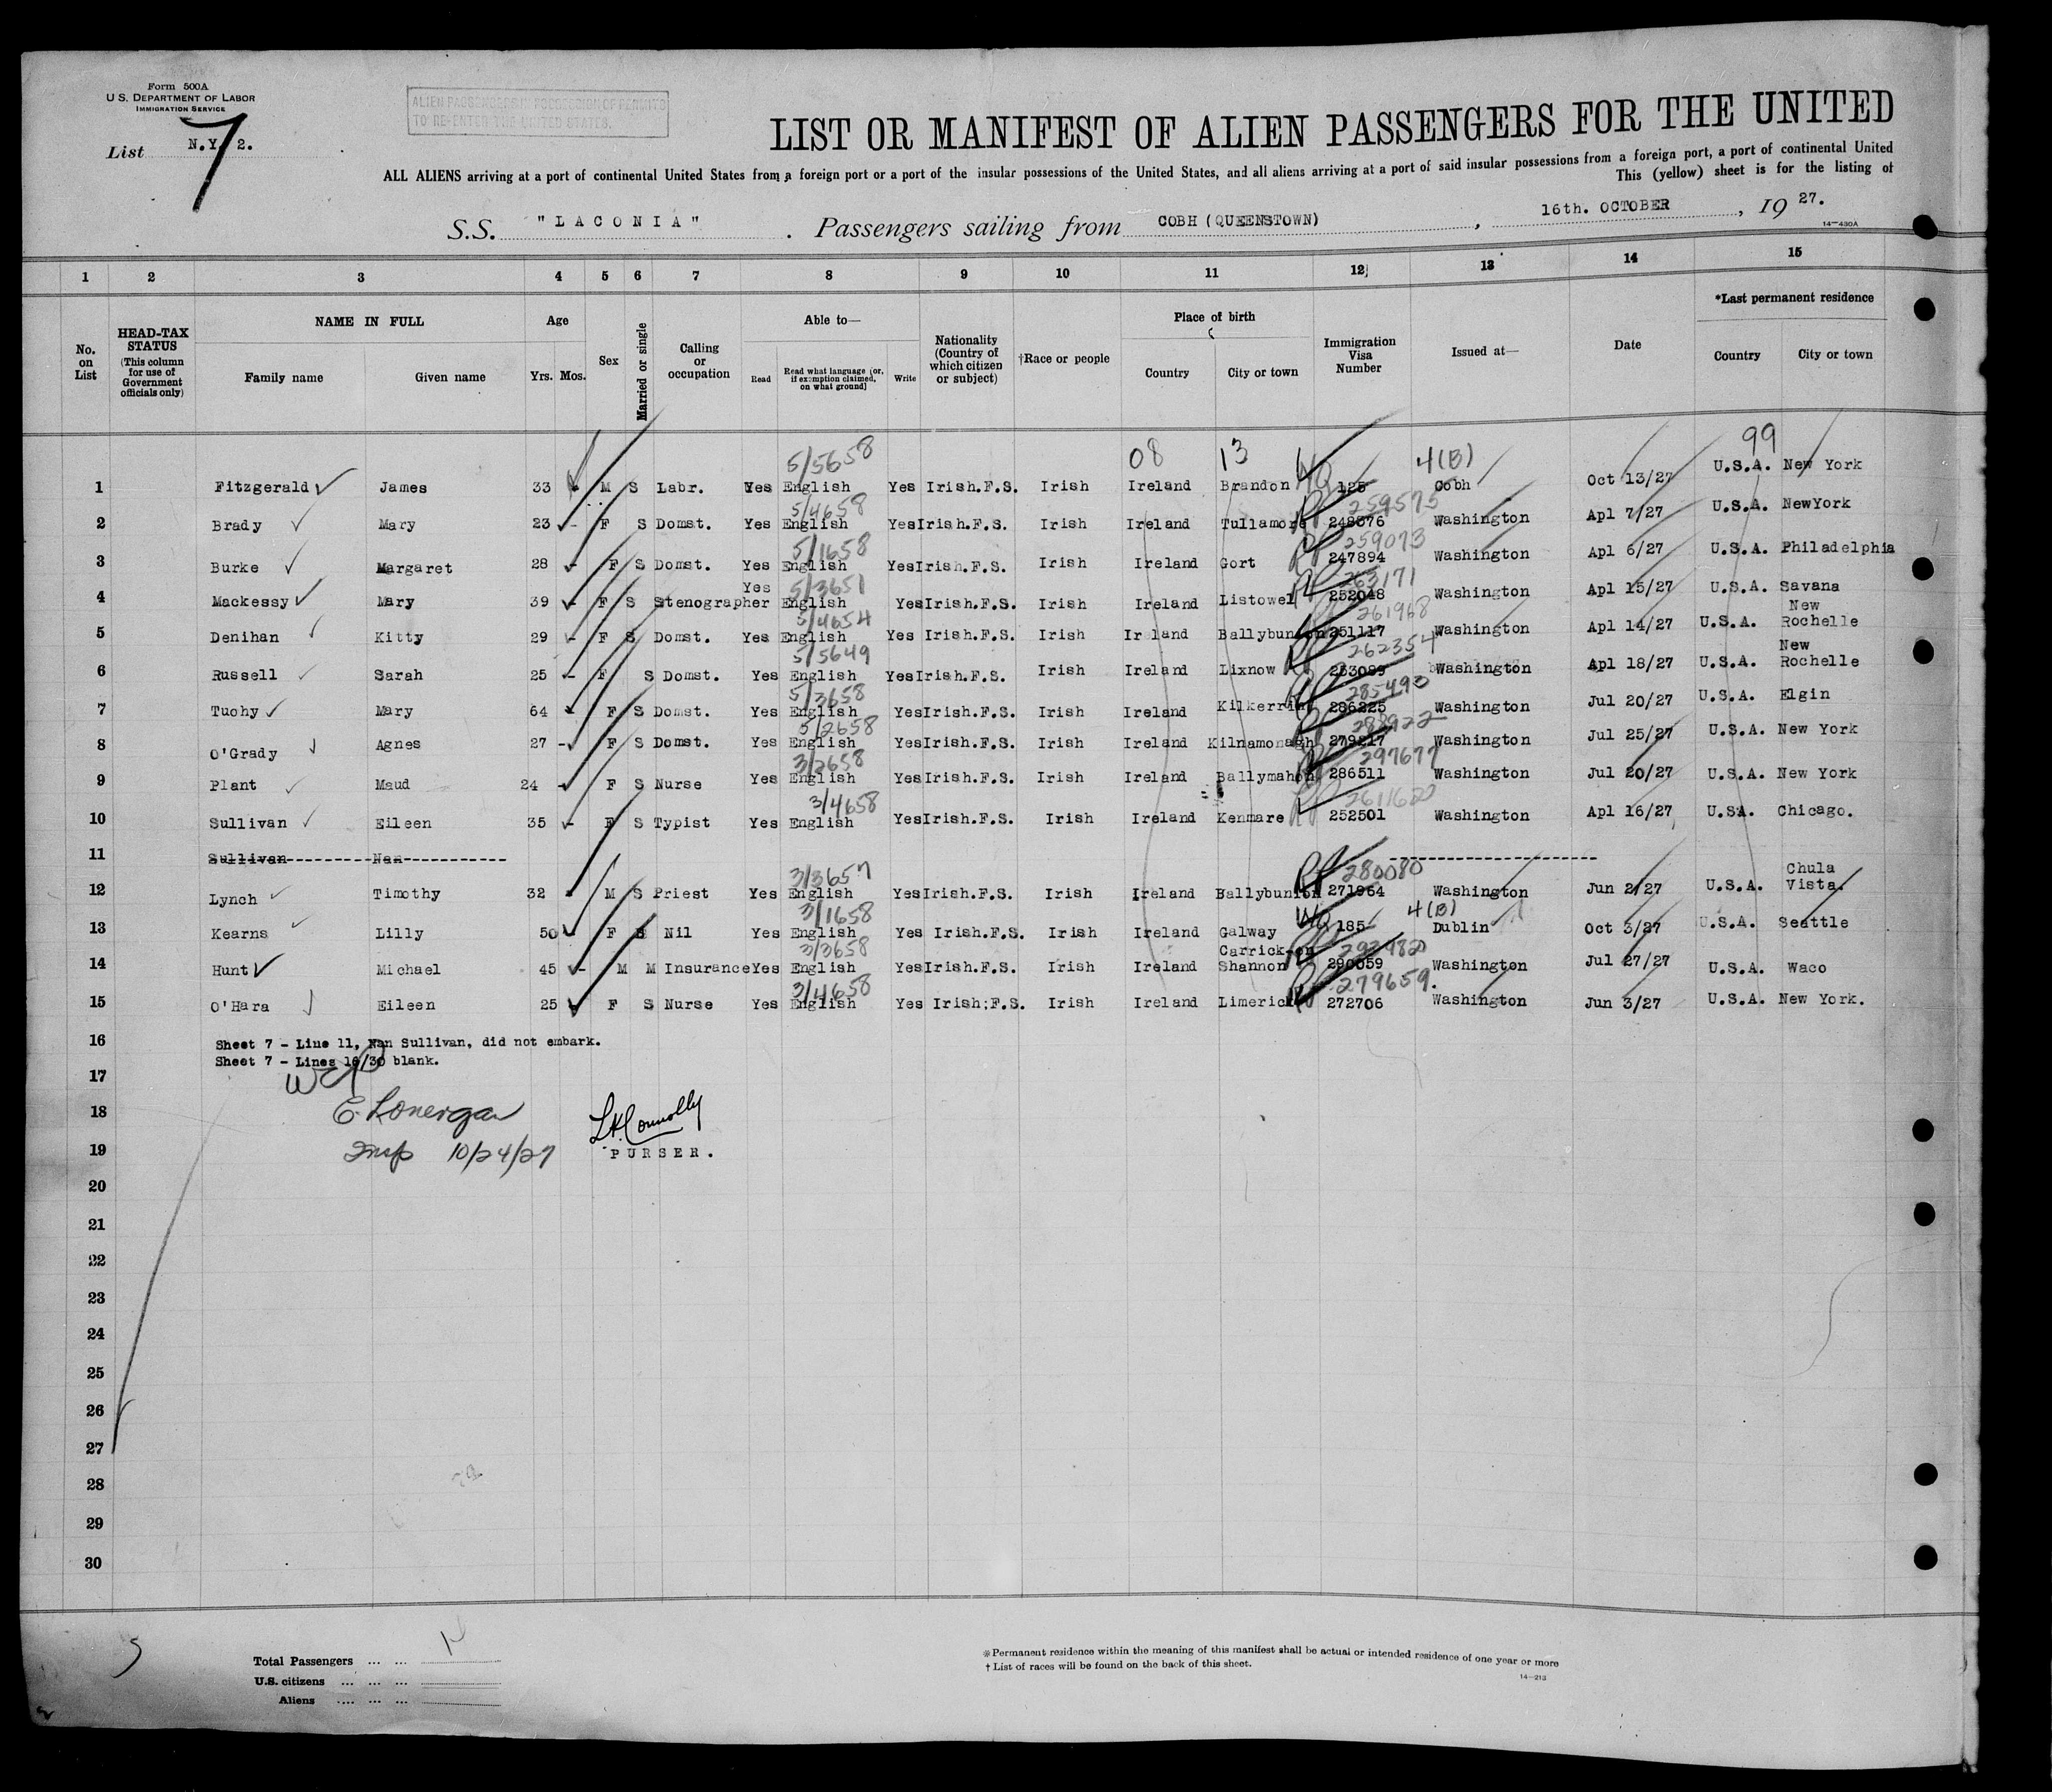 Form 500A
U.S. DEPARTMENT OF LABOR
IMMIGRATION SERVICE
List N.Y. 2.
7
ALIEN PASSENGERS IN POSSESSION OF PERMITS
TO RE-ENTER THE UNITED STATES.
LIST OR MANIFEST OF ALIEN PASSENGERS FOR THE UNITED
ALL ALIENS arriving at a port of continental United States from a foreign port or a port of the insular possessions of the United States, and all aliens arriving at a port of said insular possessions from a foreign port, a port of continental United
This (yellow) sheet is for the listing of
S.S. "LACONIA". Passengers sailing from COBH (QUEENSTOWN), 16th. OCTOBER, 1927.
14-430A
1 2 3 4 5 6 7 8 9 10 11 12 13 14 15
No. on List
HEAD-TAX STATUS (This column for use of Government officials only)
NAME IN FULL
Family name Given name
Age
Yrs. Mos.
Sex
Married or single
Calling or occupation
Able to—
Read Read what language (or, if exemption claimed, on what ground) Write
Nationality (Country of which citizen or subject)
†Race or people
Place of birth
Country City or town
Immigration Visa Number
Issued at—
Date
*Last permanent residence
Country City or town
5/5658 08 13 4(B) 99
1 Fitzgerald James 33 - M S Labr. Yes English Yes Irish.F.S. Irish Ireland Brandon 125 Cobh Oct 13/27 U.S.A. New York
5/4658 259575
2 Brady Mary 23 - F S Domst. Yes English Yes Irish.F.S. Irish Ireland Tullamore 248576 Washington Apl 7/27 U.S.A. NewYork
5/1658 259073
3 Burke Margaret 28 - F S Domst. Yes English Yes Irish.F.S. Irish Ireland Gort 247894 Washington Apl 6/27 U.S.A. Philadelphia
5/3651 263171
4 Mackessy Mary 39 - F S Stenographer Yes English Yes Irish.F.S. Irish Ireland Listowel 252048 Washington Apl 15/27 U.S.A. Savana
5/4654 261968
5 Denihan Kitty 29 - F S Domst. Yes English Yes Irish.F.S. Irish Ireland Ballybunion 251117 Washington Apl 14/27 U.S.A. New Rochelle
5/5649 262354
6 Russell Sarah 25 - F S Domst. Yes English Yes Irish.F.S. Irish Ireland Lixnow 253089 Washington Apl 18/27 U.S.A. New Rochelle
5/3658 285490
7 Tuohy Mary 64 - F S Domst. Yes English Yes Irish.F.S. Irish Ireland Kilkerrin 286225 Washington Jul 20/27 U.S.A. Elgin
5/2658 288922
8 O'Grady Agnes 27 - F S Domst. Yes English Yes Irish.F.S. Irish Ireland Kilnamonagh 279217 Washington Jul 25/27 U.S.A. New York
3/2658 297677
9 Plant Maud 24 - F S Nurse Yes English Yes Irish.F.S. Irish Ireland Ballymahon 286511 Washington Jul 20/27 U.S.A. New York
3/4658
10 Sullivan Eileen 35 - F S Typist Yes English Yes Irish.F.S. Irish Ireland Kenmare 252501 Washington Apl 16/27 U.SA. Chicago.
11 Sullivan Nan
3/3657 280080
12 Lynch Timothy 32 - M S Priest Yes English Yes Irish.F.S. Irish Ireland Ballybunion 271964 Washington Jun 2/27 U.S.A. Chula Vista.
3/1658 4(B)
13 Kearns Lilly 50 F S Nil Yes English Yes Irish.F.S. Irish Ireland Galway 185 Dublin Oct 3/27 U.S.A. Seattle
3/3658
14 Hunt Michael 45 - M M Insurance Yes English Yes Irish.F.S. Irish Ireland Carrick-on Shannon 290059 Washington Jul 27/27 U.S.A. Waco
3/4658 279659.
15 O'Hara Eileen 25 F S Nurse Yes English Yes Irish;F.S. Irish Ireland Limerick 272706 Washington Jun 3/27 U.S.A. New York.
16 Sheet 7 - Line 11, Nan Sullivan, did not embark.
Sheet 7 - Lines 16/30 blank.
17
18 E. Lonergan
L.H. Connolly
19 Insp 10/24/27 PURSER.
20
21
22
23
24
25
26
27
28
29
30
Total Passengers ... ...
U.S. citizens ... ... ...
Aliens .... ... ...
*Permanent residence within the meaning of this manifest shall be actual or intended residence of one year or more
†List of races will be found on the back of this sheet.
14-213